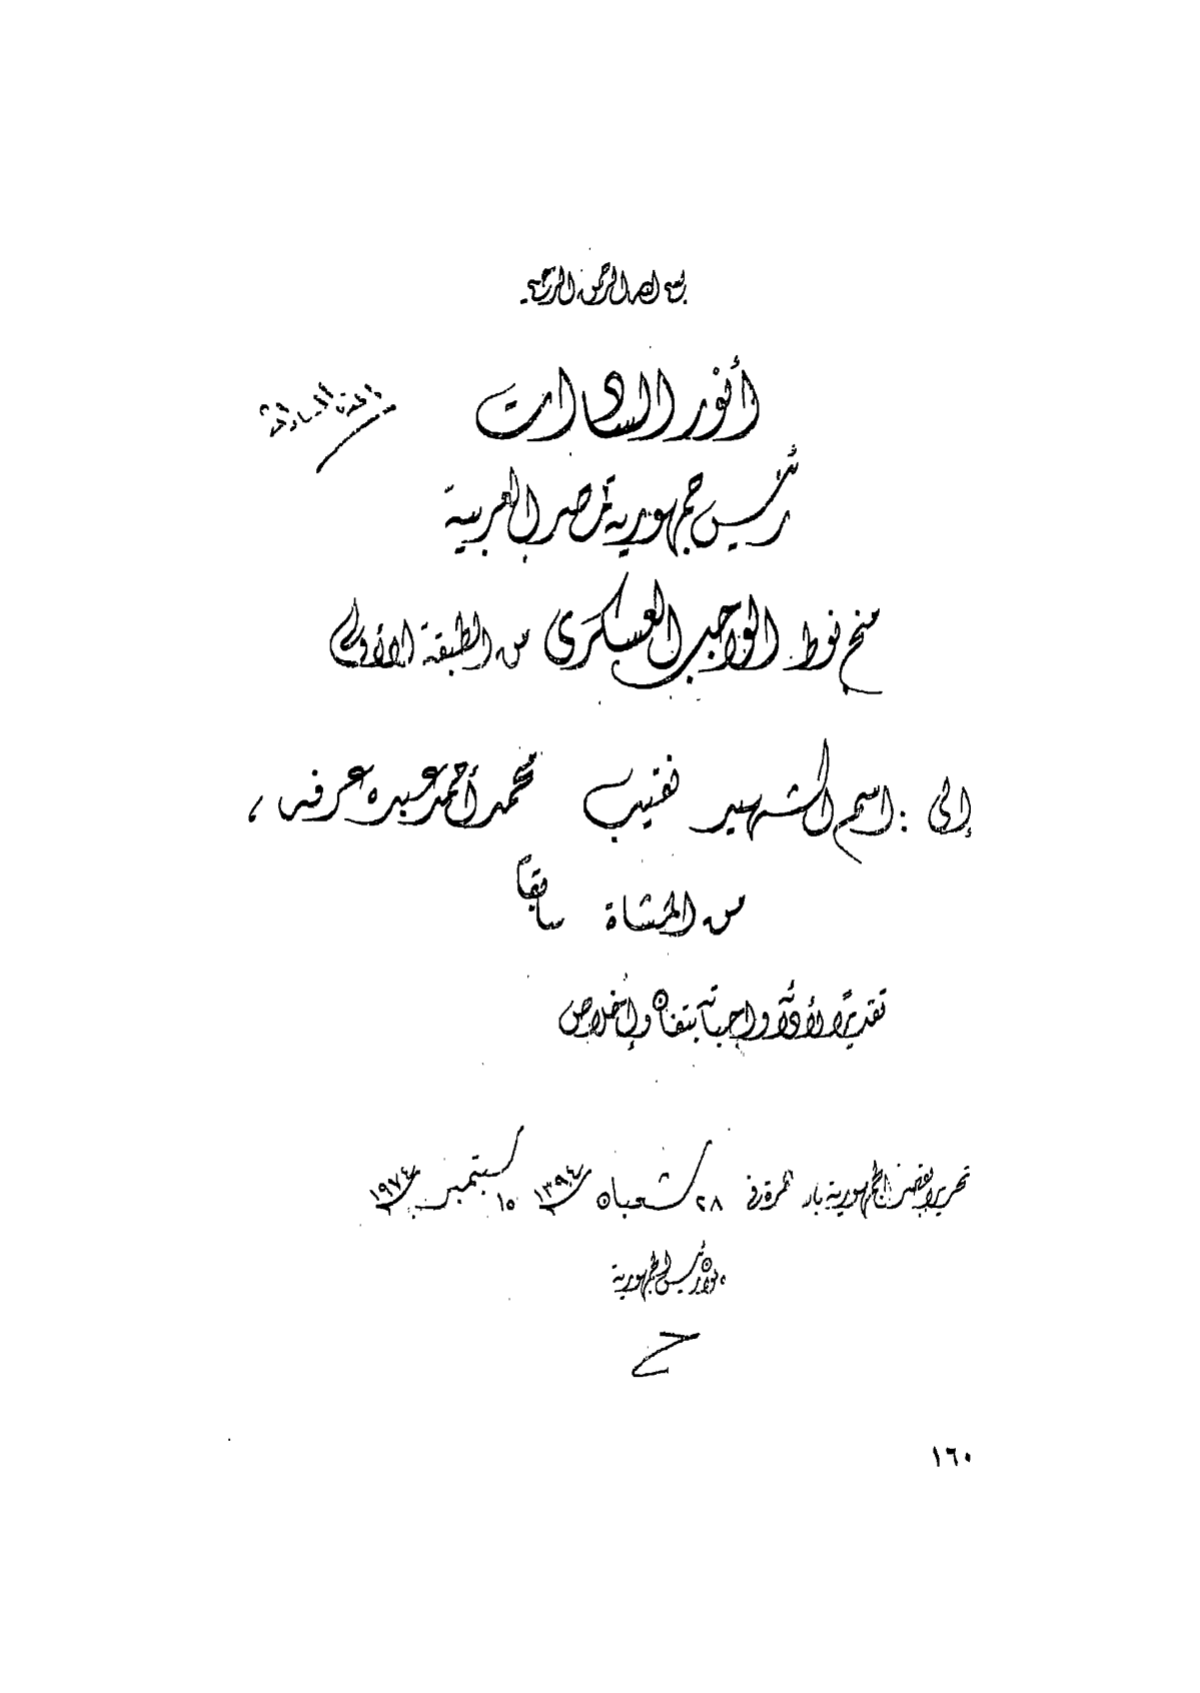 بسم الله الرحمن الرحيم
أنور السادات
رئيس جمهورية مصر العربية
منح نوط الواجب العسكرى من الطبقة الأولى
إلى : اسم الشهيد نقيب محمد أحمد عبده عرفه ،
من المشاة سابقاً
تقديرًا لأدائه واجباته بتفان وإخلاص
تحريرا بقصر الجمهورية بالقاهرة فى ٢٨ شعبان ١٣٩٤ ١٥ سبتمبر ١٩٧٤
رئيس الجمهورية
١٦٠